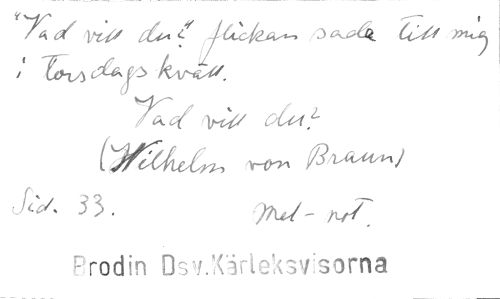 "Vad vill du?" flickan sade till mig
i torsdags kväll.
Vad vill du?
(Wilhelm von Braun)
Sid. 33.
Mel-not.
Brodin Dsv.Kärleksvisorna